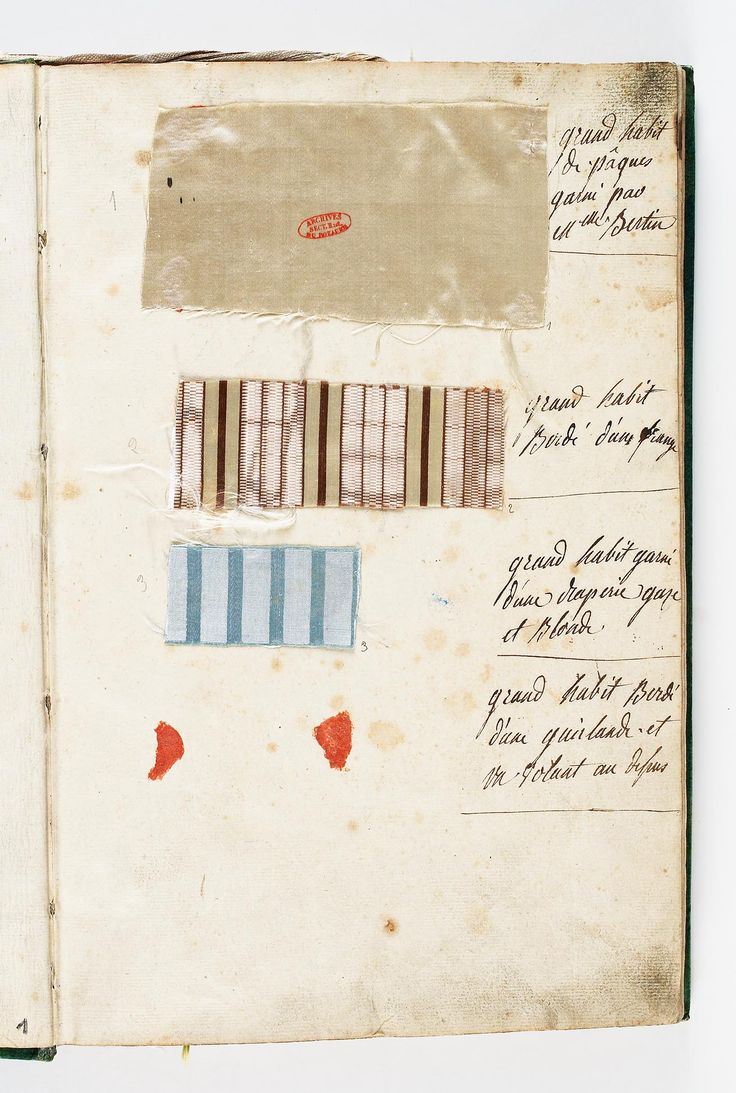 grand habit
de pâques
garni par
M^elle Bertin
1
ARCHIVES
SECT. H
DU ROYAUME
1
grand habit
Bordé d'une frange
2
2
grand habit garni
d'une draperie gaze
et Blonde
3
3
grand habit Bordé
d'une guirlande et
un volant au dessus
1